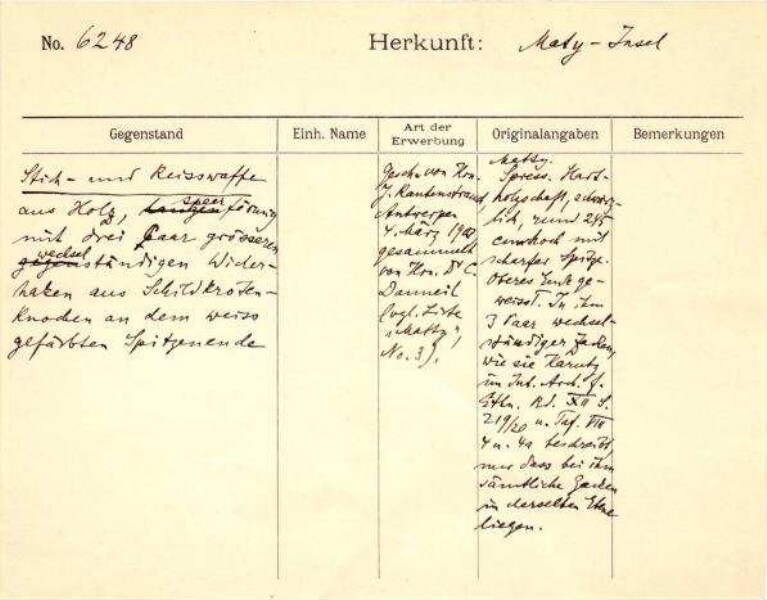 No. 6248
Herkunft: Maty-Insel
Gegenstand
Einh. Name
Art der Erwerbung
Originalangaben
Bemerkungen
Stich- und Reisswaffe
speer
aus Holz, lanzenförmig
mit drei Paar grösseren
wechsel
gegenständigen Wider-
haken aus Schildkröten-
knochen an dem weiss
gefärbten Spitzenende
Gesch. von Hrn.
J. Rautenstrauch,
Antwerpen
4. März
gesammelt
von Hrn. Dr C.
Danneil
(vgl. Liste
"Matty",
No. 3).
Matty.
Speer. Hart-
holzschaft, schwärz-
lich, rund 245
cm hoch mit
scharfer Spitze.
Oberes Ende ge-
weisst. In ihm
3 Paar wechsel-
ständiger Zacken,
wie sie Karutz
im Int. Arch. f.
Ethn. Bd. XII S.
219/20 u. Taf. VIII
4 u. 4a beschreibt,
nur dass bei ihm
sämtliche Zacken
in derselben Ebene
liegen.